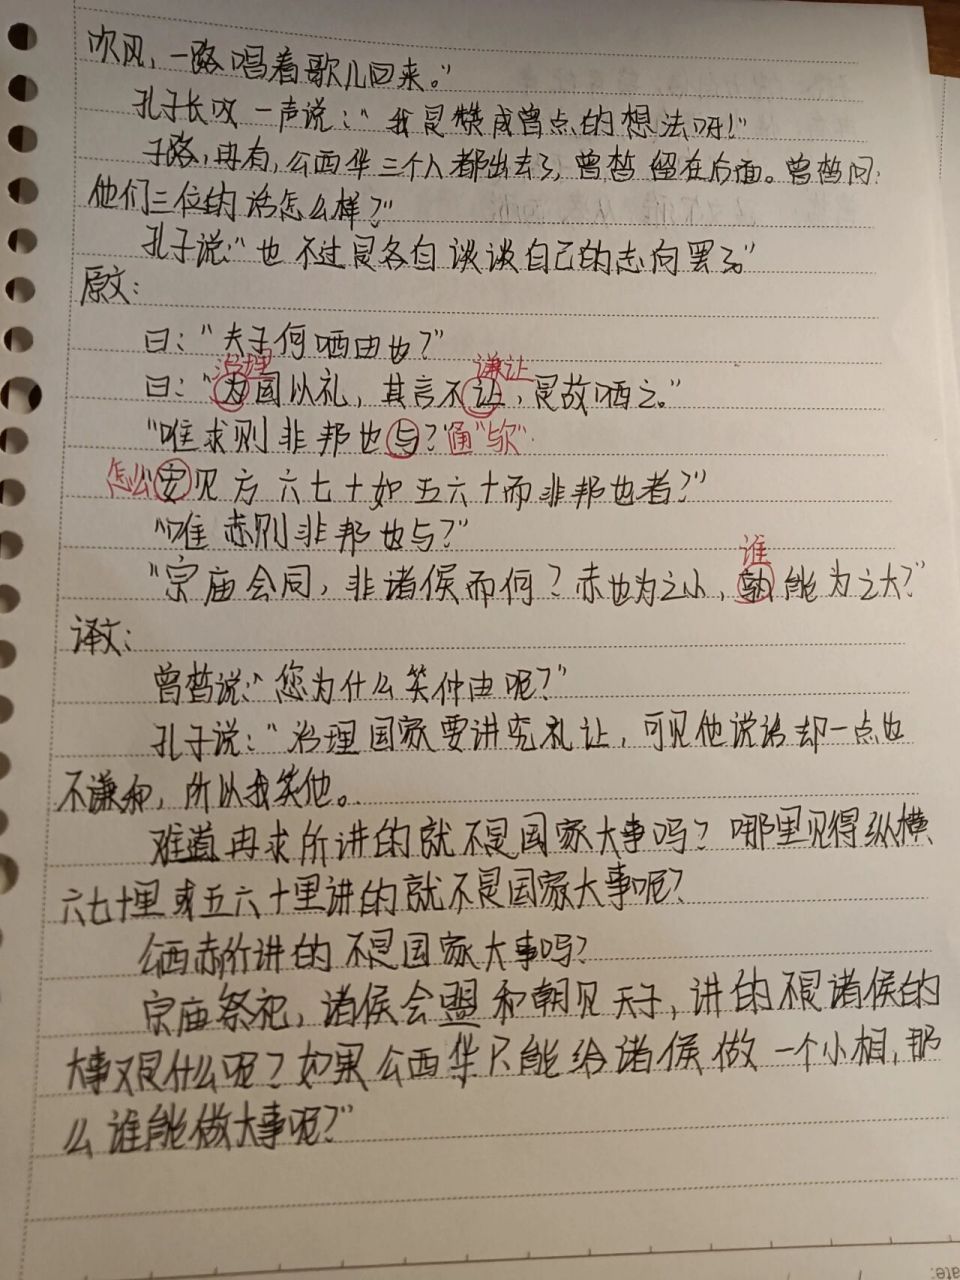 吹风，一路唱着歌儿回来。"
孔子长叹一声说："我是赞成曾点的想法呀！"
子路，冉有，公西华三个人都出去了，曾皙留在后面。曾皙问：
他们三位的话怎么样？"
孔子说："也不过是各自谈谈自己的志向罢了。"
原文：
曰："夫子何哂由也？"
治理 谦让
曰："为国以礼，其言不让，是故哂之。"
"唯求则非邦也与？"通"欤"
怎么"安见方六七十如五六十而非邦也者？"
"唯赤则非邦也与？"
谁
"宗庙会同，非诸侯而何？赤也为之小，孰能为之大？"
译文：
曾皙说："您为什么笑仲由呢？"
孔子说："治理国家要讲究礼让，可见他说话却一点也
不谦和，所以我笑他。
难道冉求所讲的就不是国家大事吗？哪里见得纵横
六七十里或五六十里讲的就不是国家大事呢？
公西赤所讲的不是国家大事吗？
宗庙祭祀，诸侯会盟和朝见天子，讲的不是诸侯的
大事又是什么呢？如果公西华只能给诸侯做一个小相，那
么谁能做大事呢？"